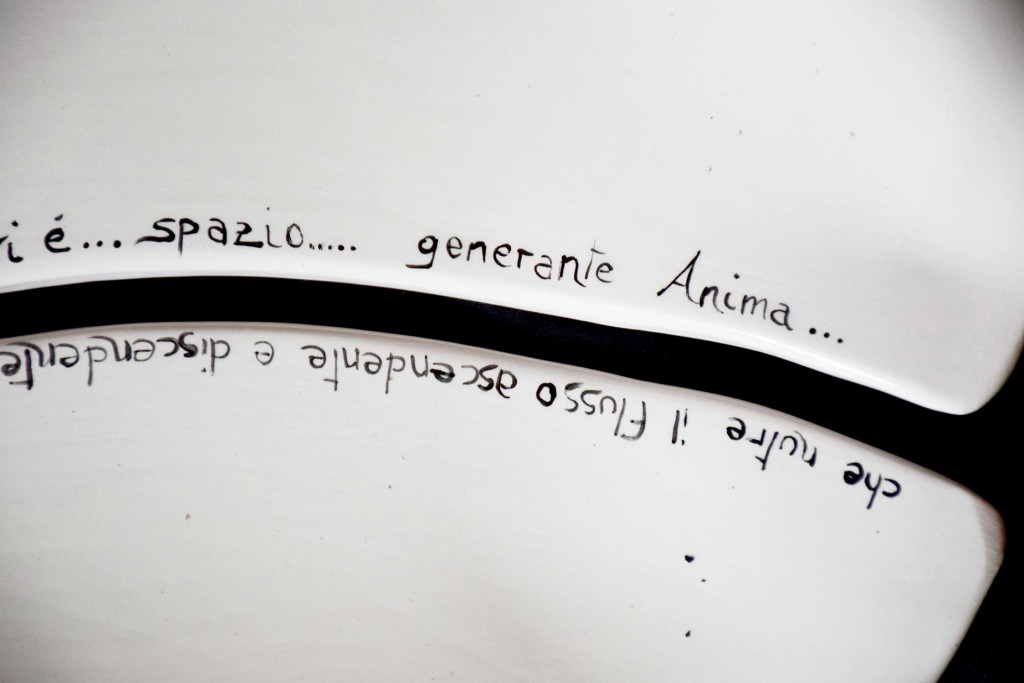 i é... spazio..... generante Anima...
che nutre il flusso ascendente e discendente